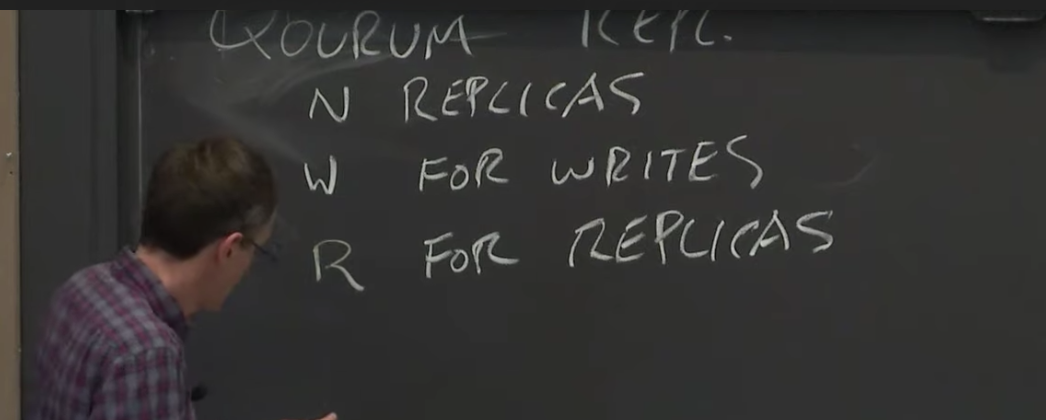 QUORUM REPL.
N REPLICAS
W FOR WRITES
R FOR REPLICAS